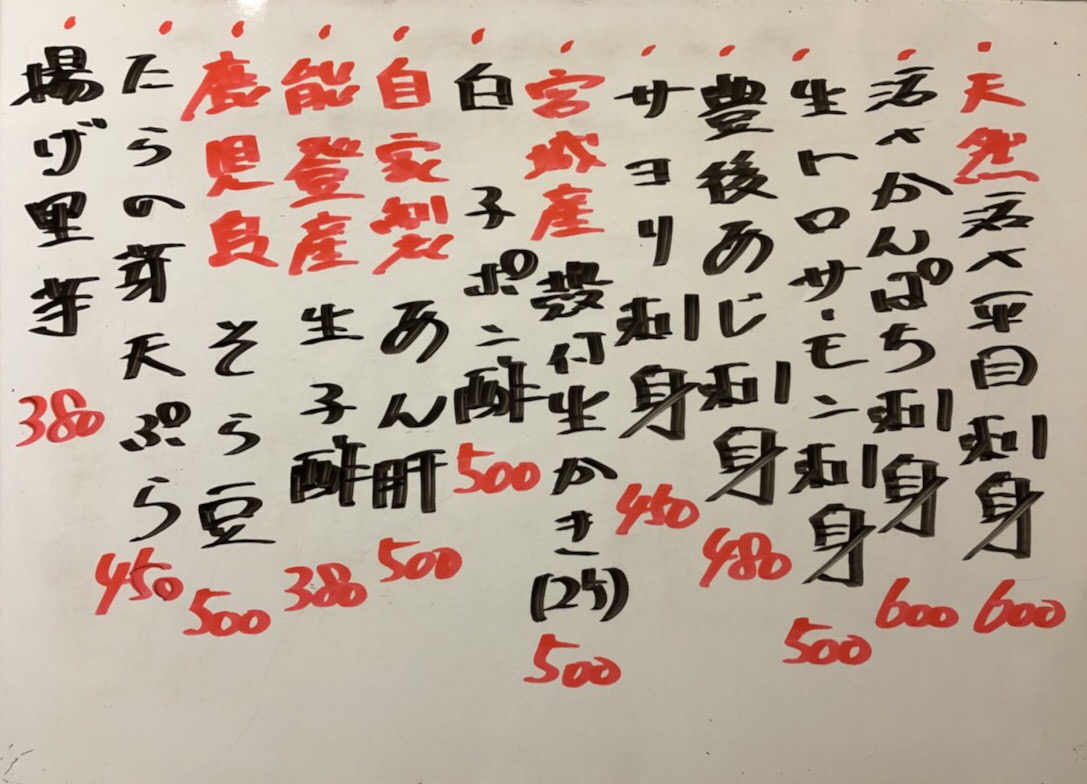 天然活〆平目刺身 600
活〆かんぱち刺身 600
生トロサーモン刺身 500
豊後あじ刺身 480
サヨリ刺身 450
宮城産殻付生かき(2ケ) 500
白子ポン酢 500
自家製あん肝 500
能登産生子酢 380
鹿児島そら豆 500
たらの芽天ぷら 450
揚げ里芋 380